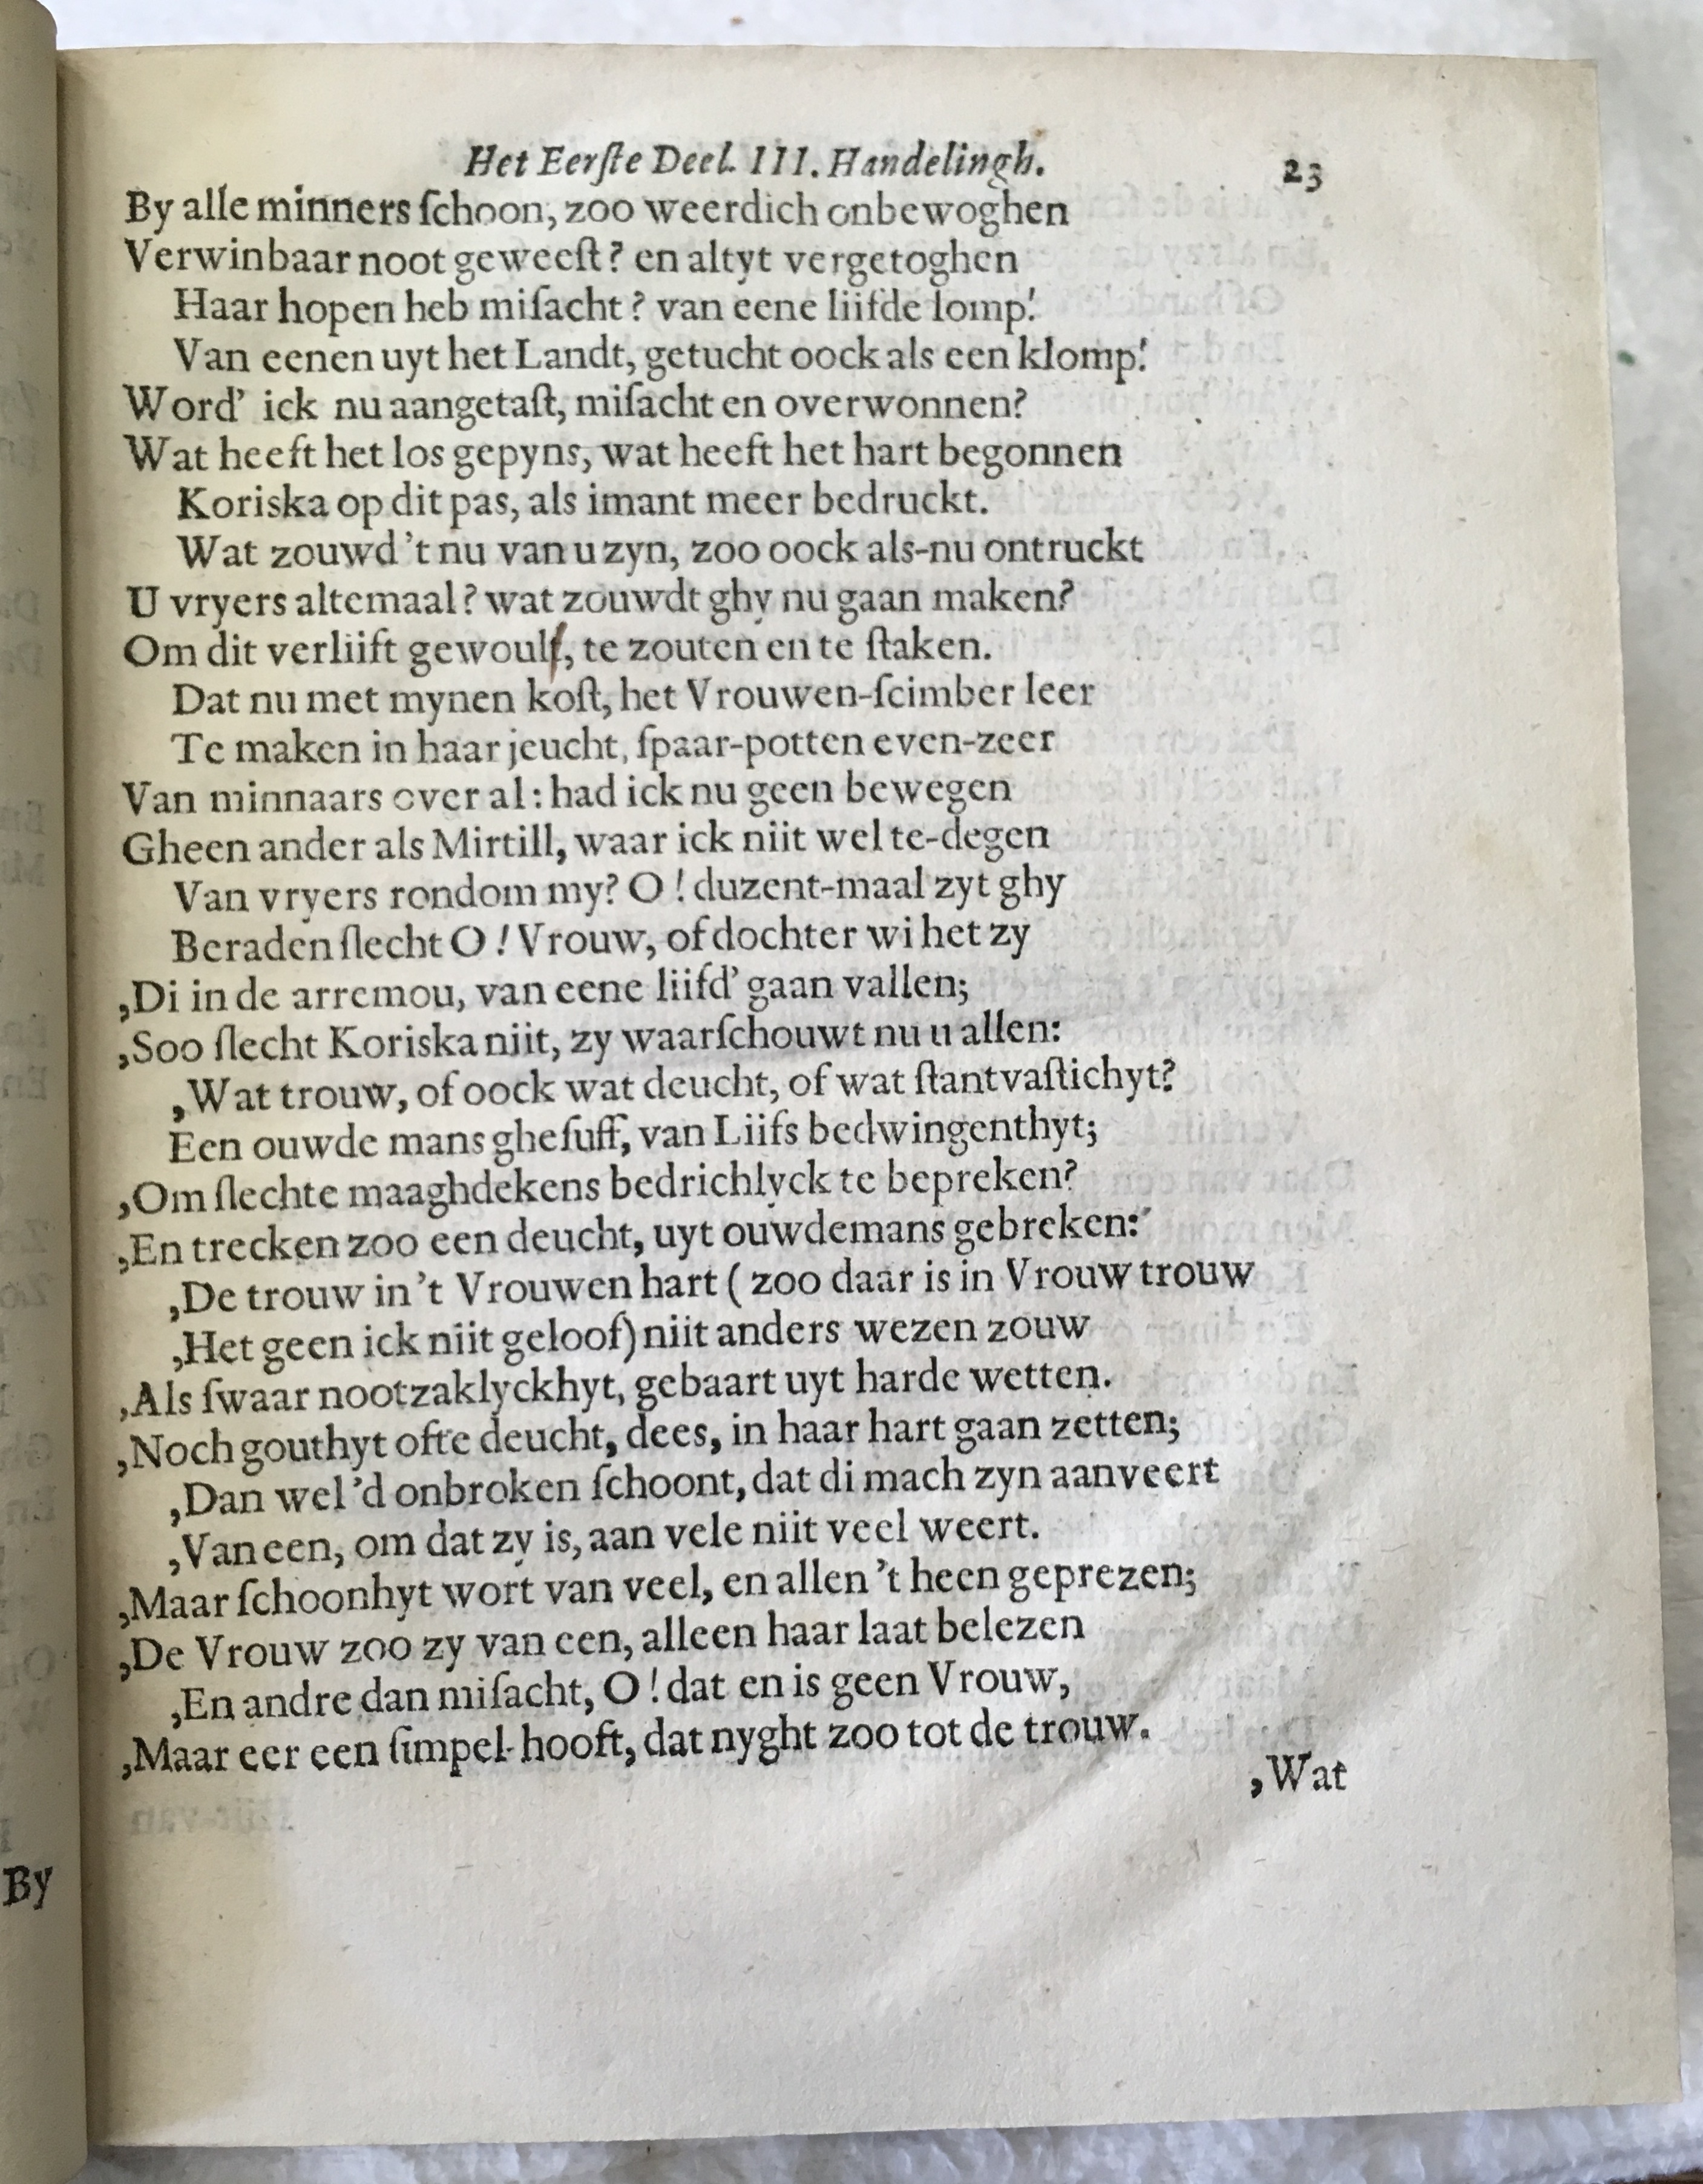 Het Eerſte Deel. III. Handelingh. 23
By alle minners ſchoon, zoo weerdich onbewoghen
Verwinbaar noot geweeſt? en altyt vergetoghen
Haar hopen heb miſacht? van eene liifde lomp!
Van eenen uyt het Landt, getucht oock als een klomp!
Word' ick nu aangetaſt, miſacht en overwonnen?
Wat heeft het los gepyns, wat heeft het hart begonnen
Koriska op dit pas, als imant meer bedruckt.
Wat zouwd 't nu van u zyn, zoo oock als-nu ontruckt
U vryers altemaal? wat zouwdt ghy nu gaan maken?
Om dit verliift gewoulf, te zouten en te ſtaken.
Dat nu met mynen koſt, het Vrouwen-ſcimber leer
Te maken in haar jeucht, ſpaar-potten even-zeer
Van minnaars over al: had ick nu geen bewegen
Gheen ander als Mirtill, waar ick niit wel te-degen
Van vryers rondom my? O! duzent-maal zyt ghy
Beraden ſlecht O! Vrouw, of dochter wi het zy
,Di in de arremou, van eene liifd' gaan vallen;
,Soo ſlecht Koriska niit, zy waarſchouwt nu u allen:
,Wat trouw, of oock wat deucht, of wat ſtantvaſtichyt?
Een ouwde mans gheſuff, van Liifs bedwingenthyt;
,Om ſlechte maaghdekens bedrichlyck te bepreken?
,En trecken zoo een deucht, uyt ouwdemans gebreken:
,De trouw in 't Vrouwen hart (zoo daar is in Vrouw trouw
,Het geen ick niit geloof) niit anders wezen zouw
,Als ſwaar nootzaklyckhyt, gebaart uyt harde wetten.
,Noch gouthyt ofte deucht, dees, in haar hart gaan zetten;
,Dan wel 'd onbroken ſchoont, dat di mach zyn aanveert
,Van een, om dat zy is, aan vele niit veel weert.
,Maar ſchoonhyt wort van veel, en allen 't heen geprezen;
,De Vrouw zoo zy van een, alleen haar laat belezen
,En andre dan miſacht, O! dat en is geen Vrouw,
,Maar eer een ſimpel-hooft, dat nyght zoo tot de trouw.
,Wat
By